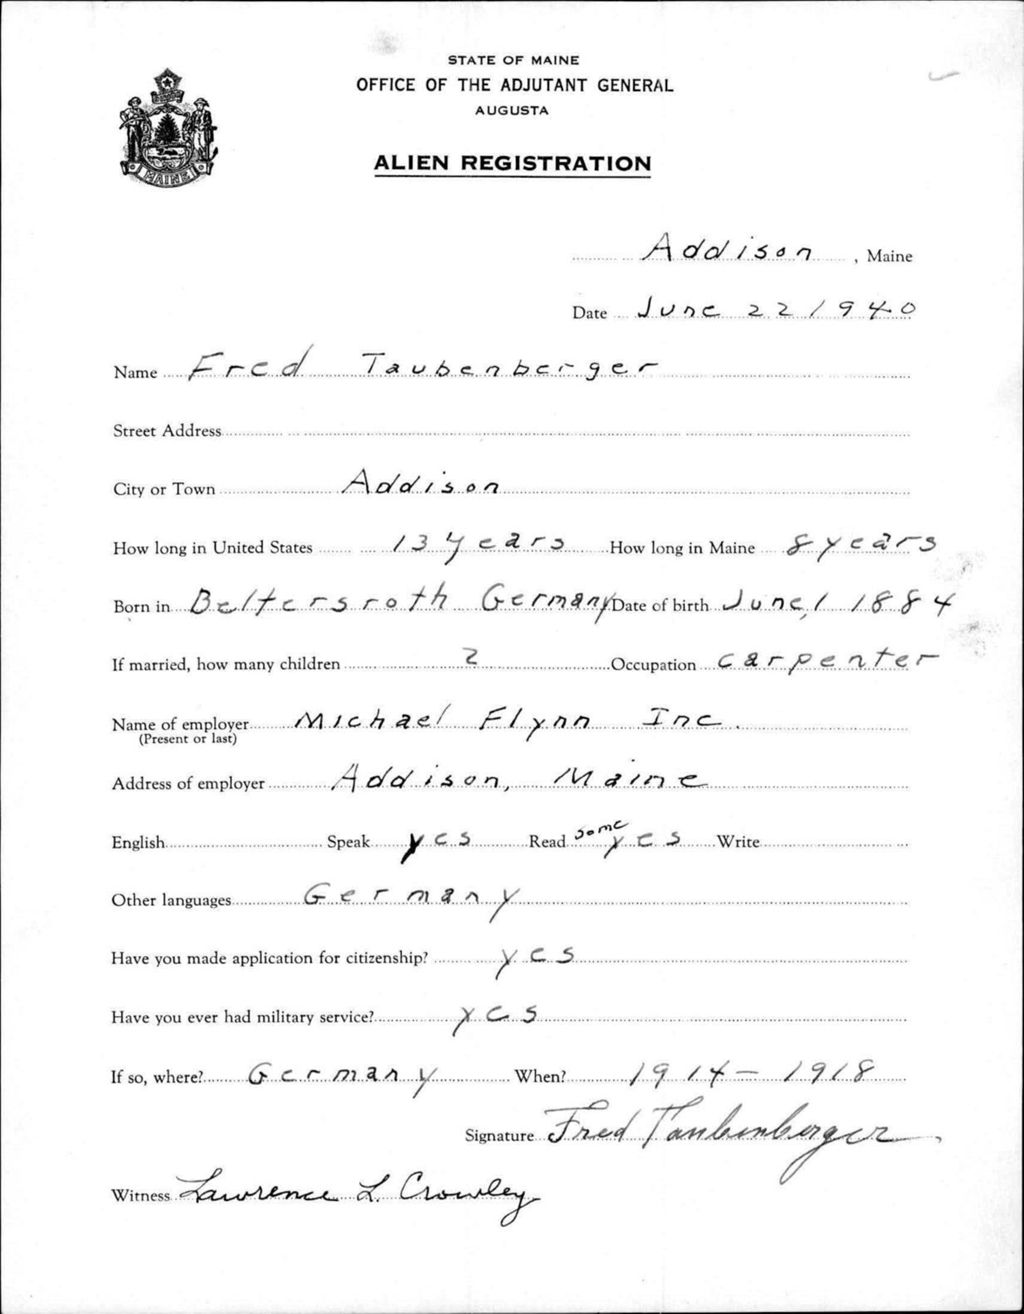 STATE OF MAINE
OFFICE OF THE ADJUTANT GENERAL
AUGUSTA
ALIEN REGISTRATION
MAINE
Addison, Maine
Date June 22 1940
Name Fred Taubenberger
Street Address
City or Town Addison
How long in United States 13 years How long in Maine 8 years
Born in Beltersroth Germany Date of birth June, 1 1884
If married, how many children 2 Occupation carpenter
Name of employer Michael Flynn Inc.
(Present or last)
Address of employer Addison, Maine
English Speak yes Read some yes Write
Other languages Germany
Have you made application for citizenship? yes
Have you ever had military service? yes
If so, where? Germany When? 1914 - 1918
Signature Fred Taubenberger
Witness Lawrence L. Crowley